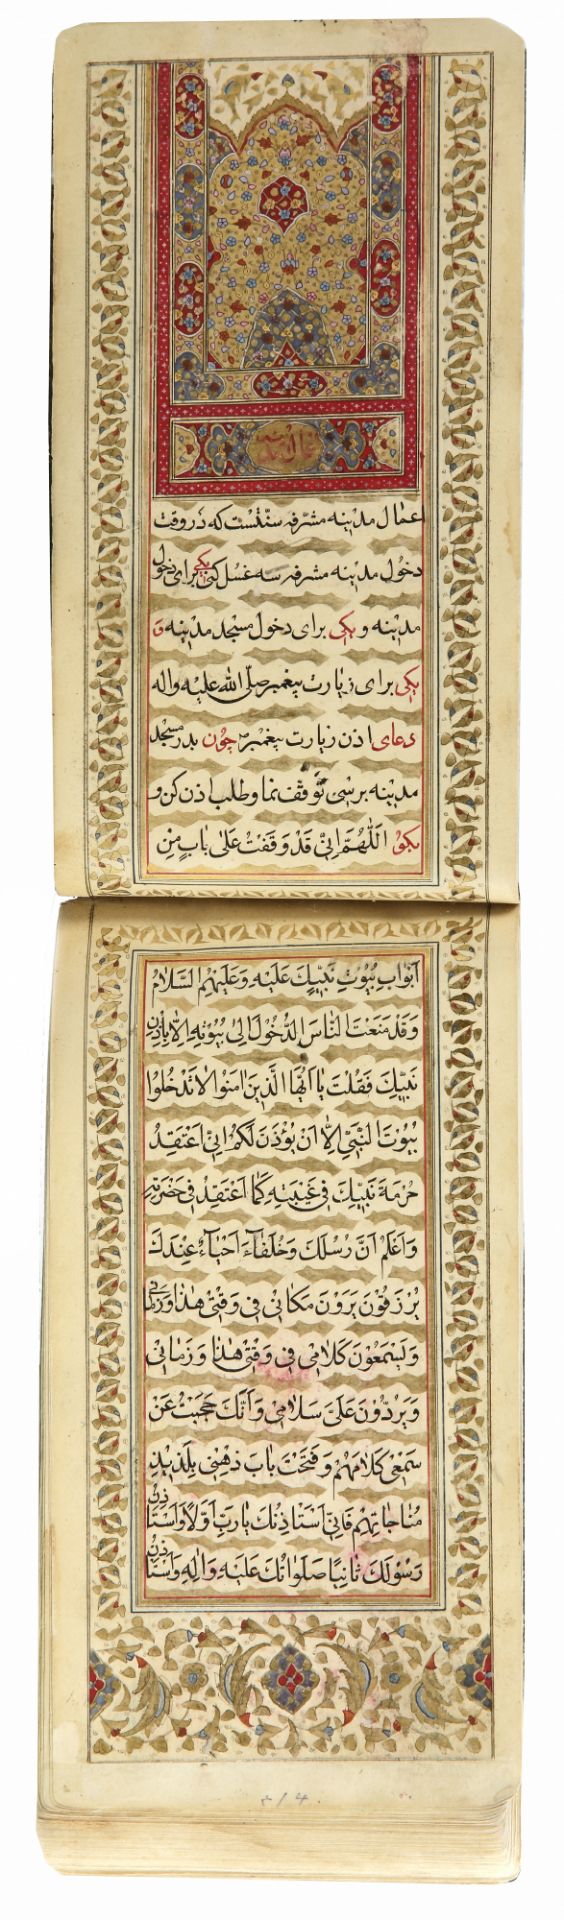 اعمال مدینه مشرفه سنتست که در وقت
دخول مدینه مشرفه سه غسل کنی یکی برای دخول
مدینه و یکی برای دخول مسجد مدینه و
یکی برای زیارت پیغمبر صلی الله علیه واله
دعای اذن زیارت پیغمبر ص چون بدر مسجد
مدینه برسی توقف نما و طلب اذن کن و
بکو اَللّٰهُمَّ اِنّی قَدْ وَقَفْتُ عَلی بابٍ مِنْ
اَبْوابِ بُیُوتِ نَبِیِّكَ عَلَیْهِ وَعَلَیْهِمُ السَّلامُ
وَقَدْ مَنَعْتَ النّاسَ الدُّخُولَ اِلی بُیُوتِهِ اِلّا بِاِذْنِ
نَبِیِّكَ فَقُلْتَ یا اَیُّهَا الَّذینَ امَنُوا لا تَدْخُلُوا
بُیُوتَ النَّبِیِّ اِلّا اَنْ یُؤْذَنَ لَكُمْ اِنّی اَعْتَقِدُ
حُرْمَةَ نَبِیِّكَ فی غَیْبَتِهِ كَما اَعْتَقِدُ فی حَضْرَتِهِ
وَاَعْلَمُ اَنَّ رُسُلَكَ وَخُلَفآءَ اَحْیآءٌ عِنْدَكَ
یُرْزَقُونَ یَرَوْنَ مَكانی فی وَقْتی هٰذا وَزَمانی
وَیَسْمَعُونَ كَلامی فی وَقْتی هٰذا وَزَمانی
وَیَرُدُّونَ عَلَیَّ سَلامی وَاَنَّكَ حَجَبْتَ عَنْ
سَمْعی كَلامَهُمْ وَفَتَحْتَ بابَ ذِهْنی بِلَذیذِ
مُناجاتِهِمْ فَاِنّی اَسْتَاْذِنُكَ یارَبِّ اَوَّلًا وَاَسْتَاْذِنُ
رَسُولَكَ ثانِیًا صَلَواتُكَ عَلَیْهِ وَالِهِ وَاَسْتَاْذِنُ